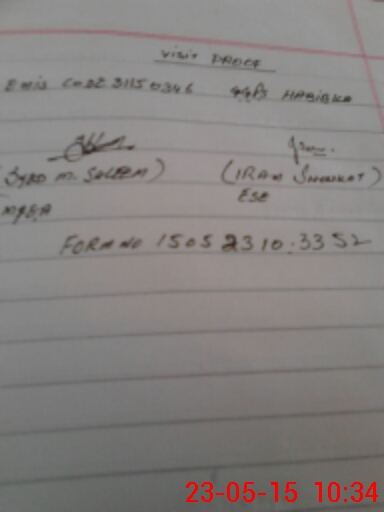 VISIT PROOF
EMIS CODE 31150346 GGPS HABIBKA
(SYED M. SALEEM) (IRAM SHOUKAT)
MEA ESE
FORM NO 15052310:3352
23-05-15 10:34